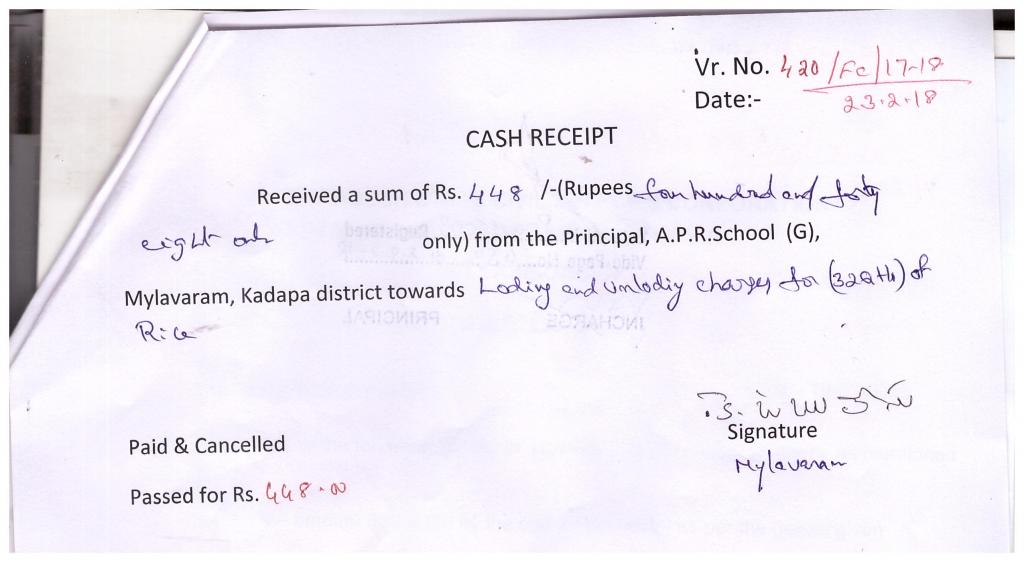 Vr. No. 420/Fc/17-18
Date:- 23.2.18
CASH RECEIPT
Received a sum of Rs. 448 /-(Rupees four hundred and forty
eight only only) from the Principal, A.P.R.School (G),
Mylavaram, Kadapa district towards Loding and unloding charges for (32 Qtls) of
Rice
Signature
Paid & Cancelled
Mylavaram
Passed for Rs. 448.00